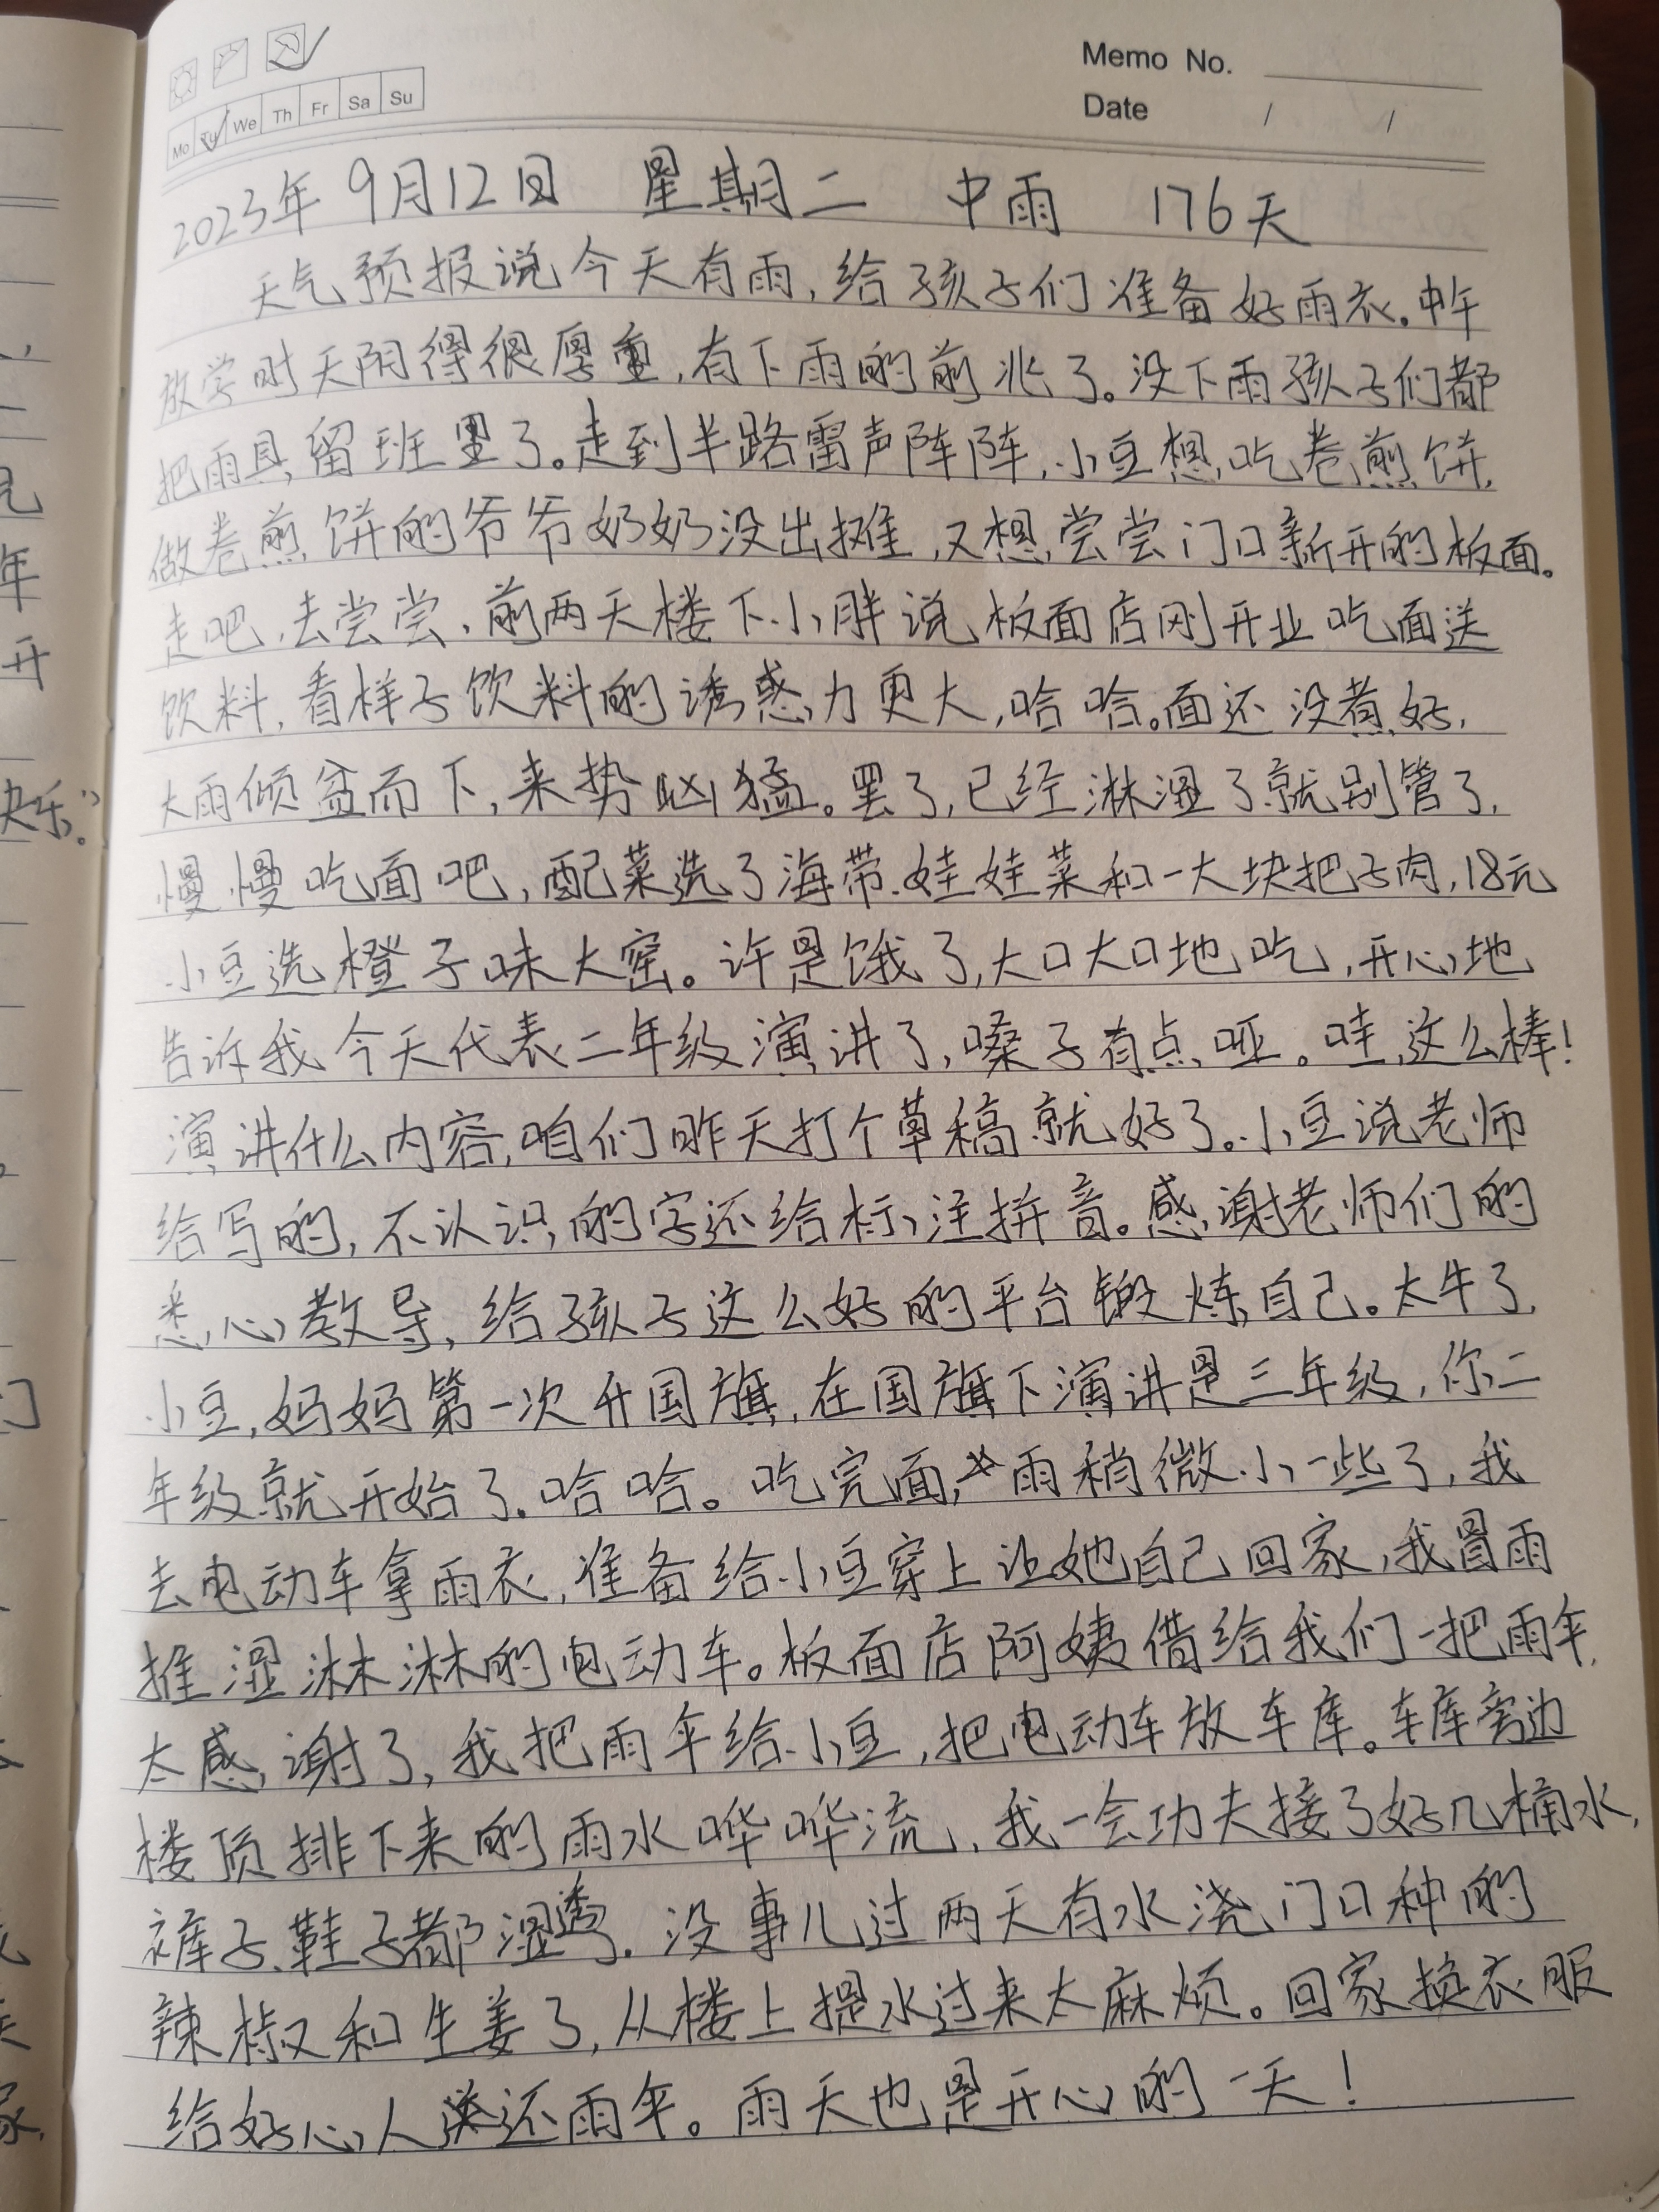 Memo No.
Date / /
Mo Tu We Th Fr Sa Su
2023年9月12日 星期二 中雨 176天
天气预报说今天有雨,给孩子们准备好雨衣。中午
放学时天阴得很厚重,有下雨的前兆了。没下雨孩子们都
把雨具留班里了。走到半路雷声阵阵,小豆想吃卷煎饼,
做卷煎饼的爷爷奶奶没出摊,又想尝尝门口新开的板面。
走吧,去尝尝,前两天楼下小胖说板面店刚开业吃面送
饮料,看样子饮料的诱惑力更大,哈哈。面还没煮好,
大雨倾盆而下,来势凶猛。罢了,已经淋湿了就别管了,
慢慢吃面吧,配菜选了海带、娃娃菜和一大块把子肉,18元
小豆选橙子味大窑。许是饿了,大口大口地吃,开心地
告诉我今天代表二年级演讲了,嗓子有点哑。哇,这么棒!
演讲什么内容,咱们昨天打个草稿就好了。小豆说老师
给写的,不认识的字还给标注拼音。感谢老师们的
悉心教导,给孩子这么好的平台锻炼自己。太牛了,
小豆,妈妈第一次升国旗,在国旗下演讲是三年级,你二
年级就开始了,哈哈。吃完面,雨稍微小一些了,我
去电动车拿雨衣,准备给小豆穿上让她自己回家,我冒雨
推湿淋淋的电动车。板面店阿姨借给我们一把雨伞,
太感谢了,我把雨伞给小豆,把电动车放车库。车库旁边
楼顶排下来的雨水哗哗流,我一会功夫接了好几桶水,
裤子、鞋子都湿透了,没事儿过两天有水浇门口种的
辣椒和生姜了,从楼上提水过来太麻烦。回家换衣服
给好心人送还雨伞。雨天也是开心的一天!
快乐。”